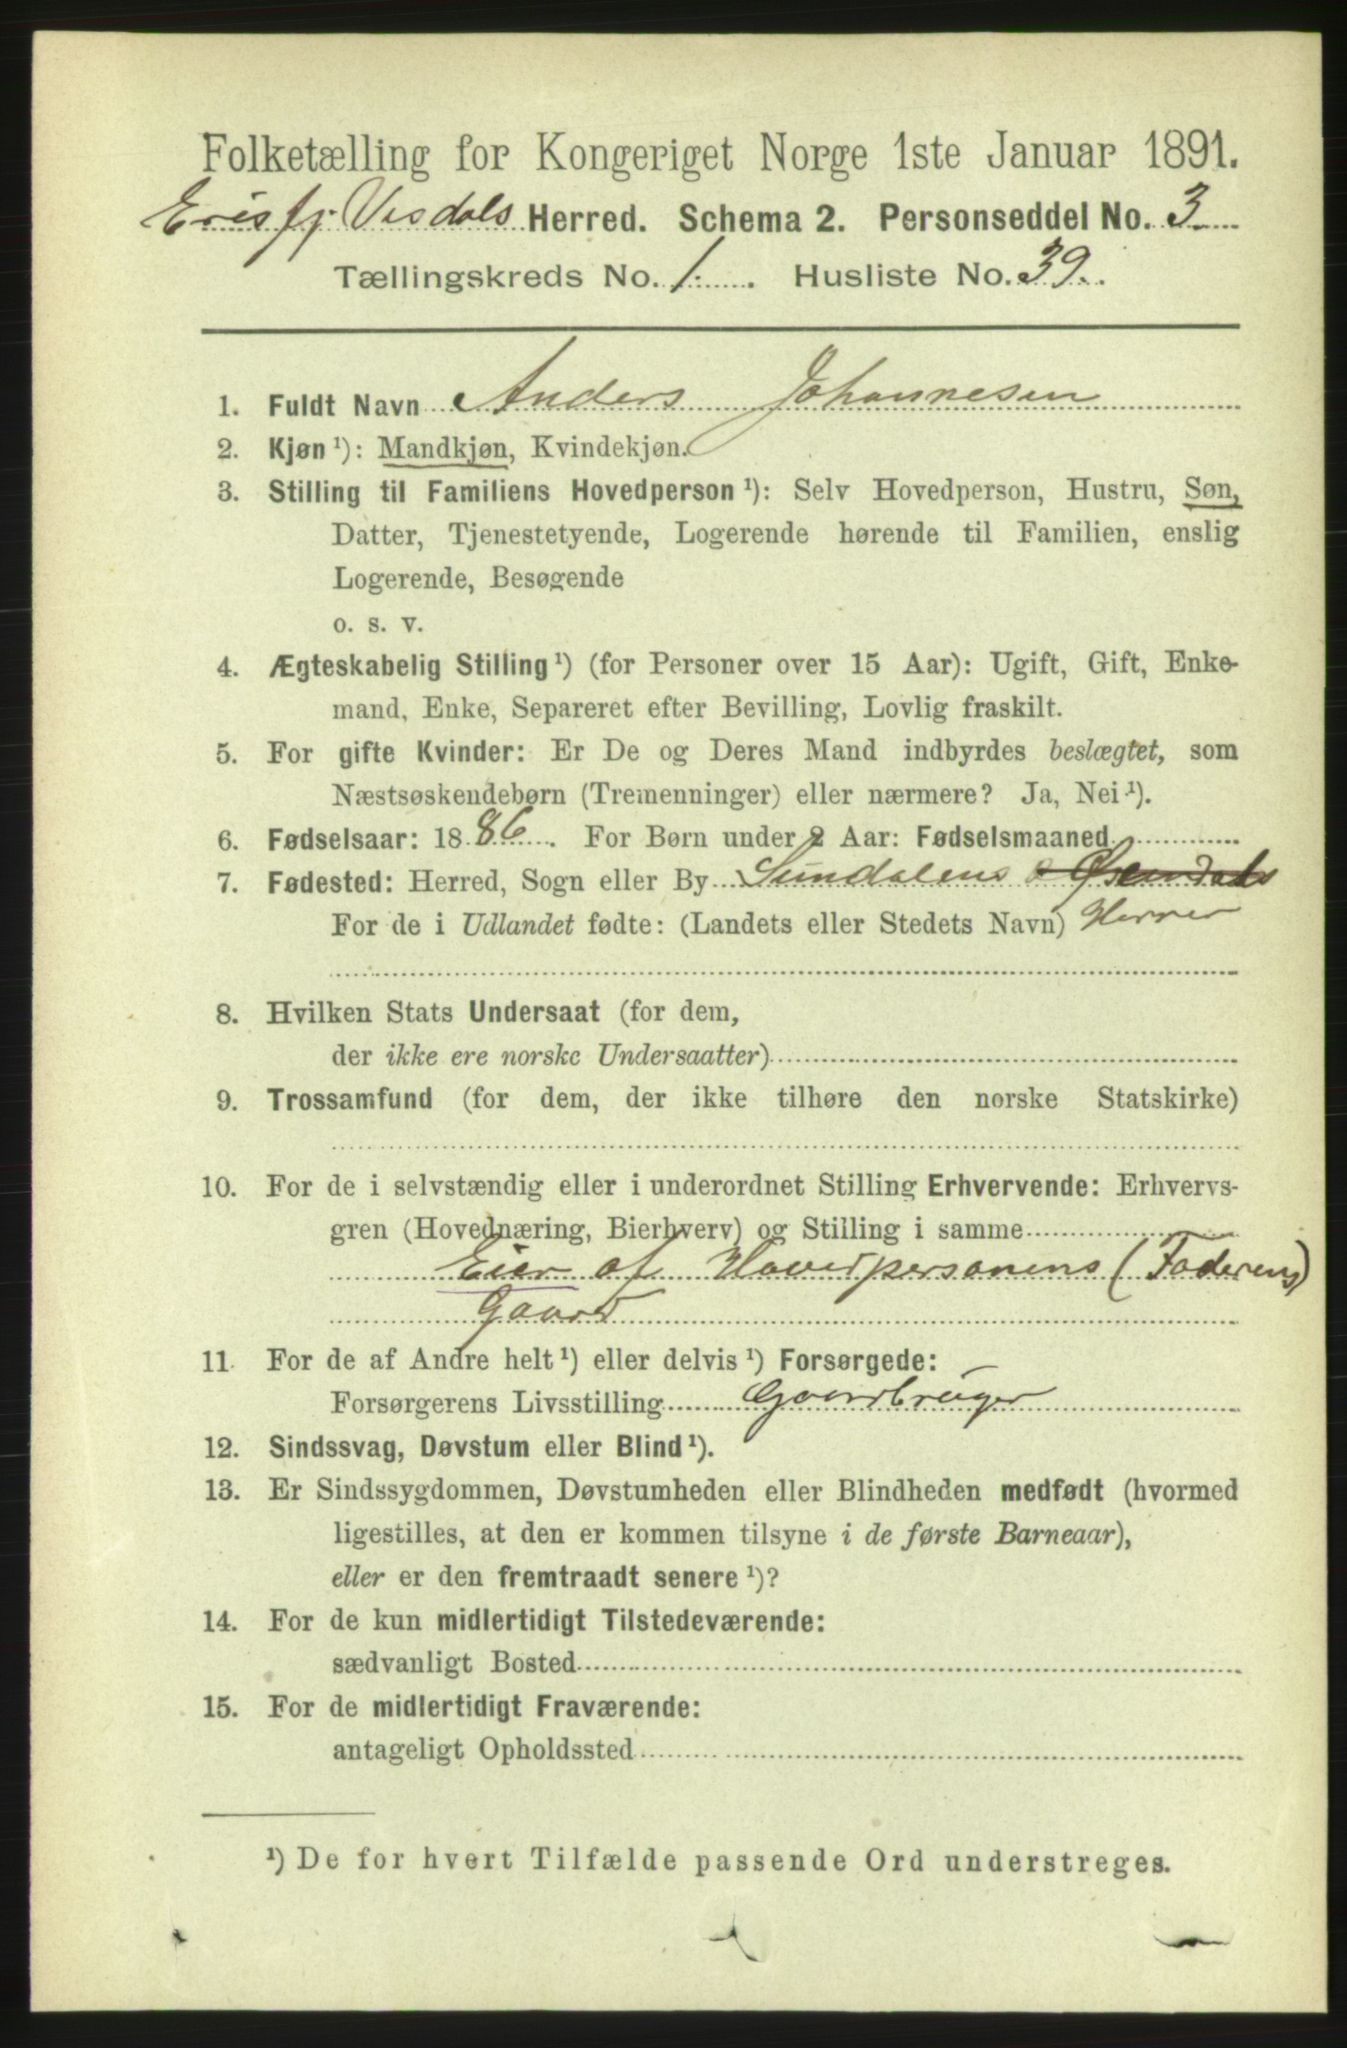 Folketælling for Kongeriget Norge 1ste Januar 1891.
Erisfj. Visdals Herred. Schema 2. Personseddel No. 3
Tællingskreds No. 1. Husliste No. 39.
1. Fuldt Navn Anders Johannesen
2. Kjøn ¹): Mandkjøn, Kvindekjøn.
3. Stilling til Familiens Hovedperson ¹): Selv Hovedperson, Hustru, Søn,
Datter, Tjenestetyende, Logerende hørende til Familien, enslig
Logerende, Besøgende
o. s. v.
4. Ægteskabelig Stilling ¹) (for Personer over 15 Aar): Ugift, Gift, Enke-
mand, Enke, Separeret efter Bevilling, Lovlig fraskilt.
5. For gifte Kvinder: Er De og Deres Mand indbyrdes beslægtet, som
Næstsøskendebørn (Tremenninger) eller nærmere? Ja, Nei ¹).
6. Fødselsaar: 1886. For Børn under 2 Aar: Fødselsmaaned
7. Fødested: Herred, Sogn eller By Sundalens
For de i Udlandet fødte: (Landets eller Stedets Navn) Herred
8. Hvilken Stats Undersaat (for dem,
der ikke ere norske Undersaatter)
9. Trossamfund (for dem, der ikke tilhøre den norske Statskirke)
10. For de i selvstændig eller i underordnet Stilling Erhvervende: Erhvervs-
gren (Hovednæring, Bierhverv) og Stilling i samme
Eier af Hovedpersonens (Faderens)
Gaard
11 For de af Andre helt ¹) eller delvis ¹) Forsørgede:
Forsørgerens Livsstilling Gaardbruger
12. Sindssvag, Døvstum eller Blind ¹).
13. Er Sindssygdommen, Døvstumheden eller Blindheden medfødt (hvormed
ligestilles, at den er kommen tilsyne i de første Barneaar),
eller er den fremtraadt senere ¹)?
14. For de kun midlertidigt Tilstedeværende:
sædvanligt Bosted
15. For de midlertidigt Fraværende:
antageligt Opholdssted
¹) De for hvert Tilfælde passende Ord understreges.